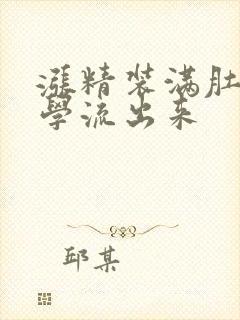 漲精装满肚
學流出来
邱某